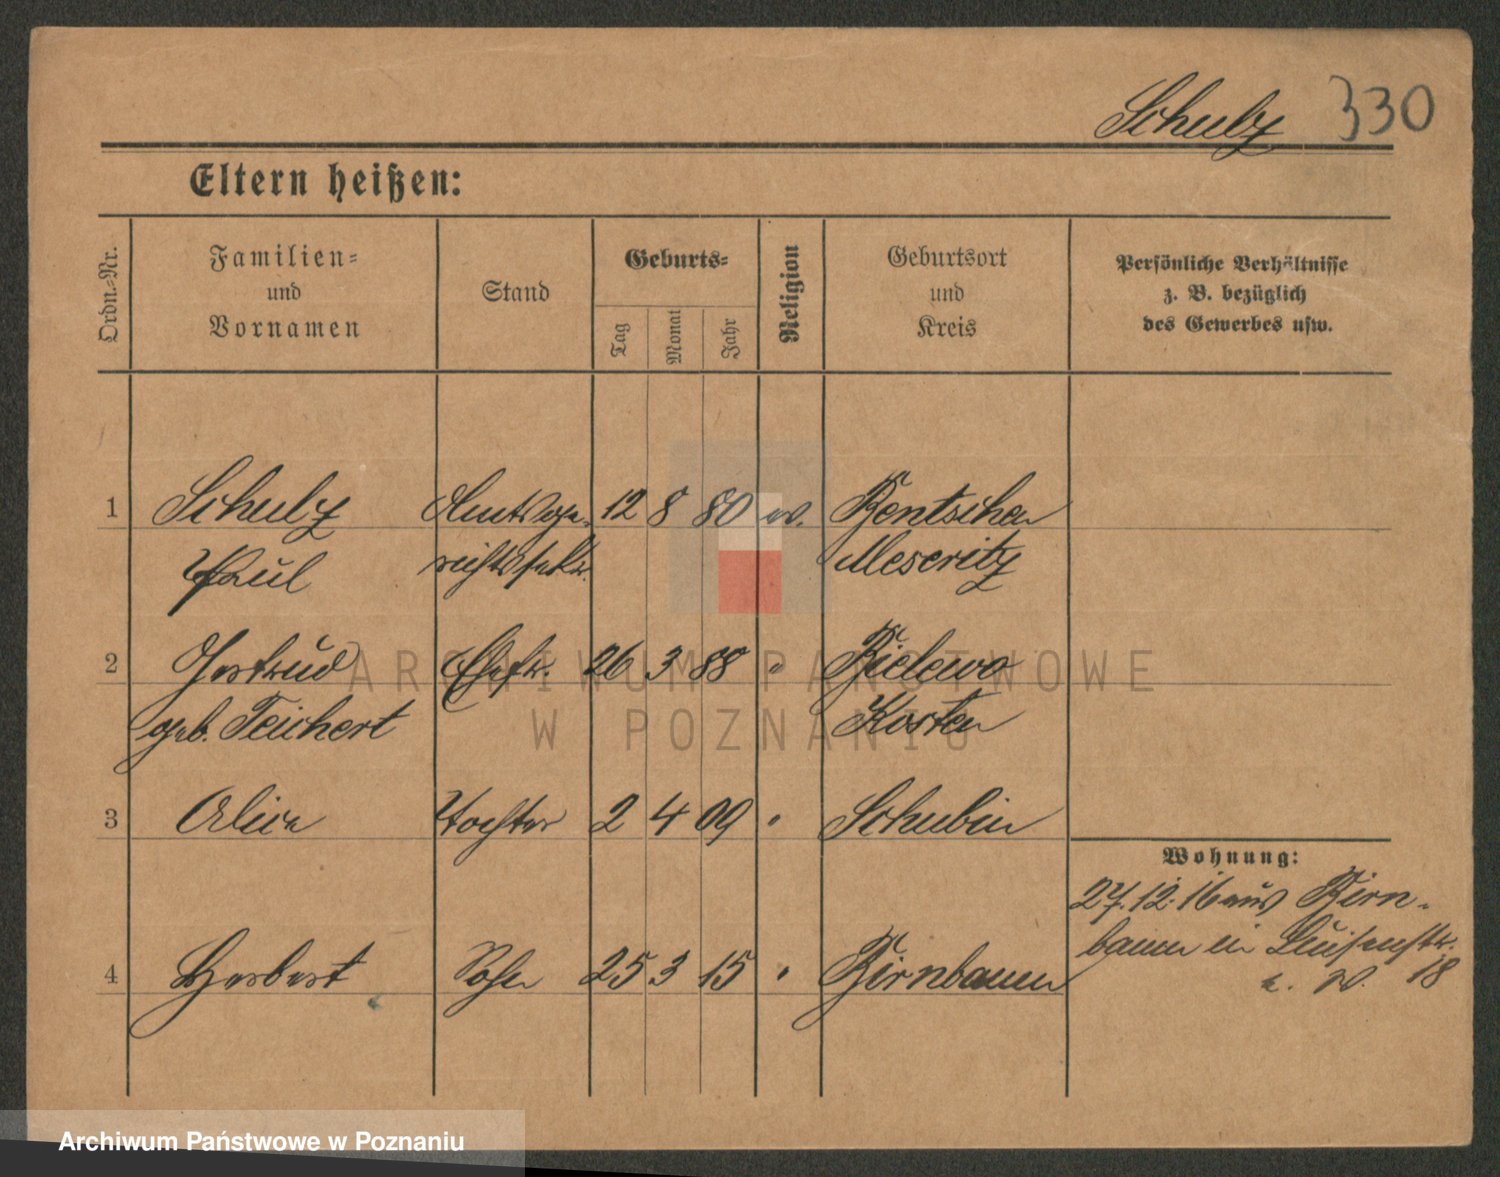 Schulz 330
Eltern heißen:
Ordn.-Nr. Familien- und Vornamen Stand Geburts- Tag Monat Jahr Religion Geburtsort und Kreis Persönliche Verhältnisse z. B. bezüglich des Gewerbes usw.
1 Schulz Amtsge- 12 8 80 ev. Bentschen
Paul richtssekr. Meseritz
2 Gertrud Ehefr. 26 3 88 " Bielewo
geb. Teichert Kosten
3 Alice Tochter 2 4 09 " Schubin
Wohnung:
27.12.16 aus Birn-
baum in Luisenstr.
18
4 Herbert Sohn 25 3 15 " Birnbaum
ARCHIWUM PAŃSTWOWE
W POZNANIU
Archiwum Państwowe w Poznaniu